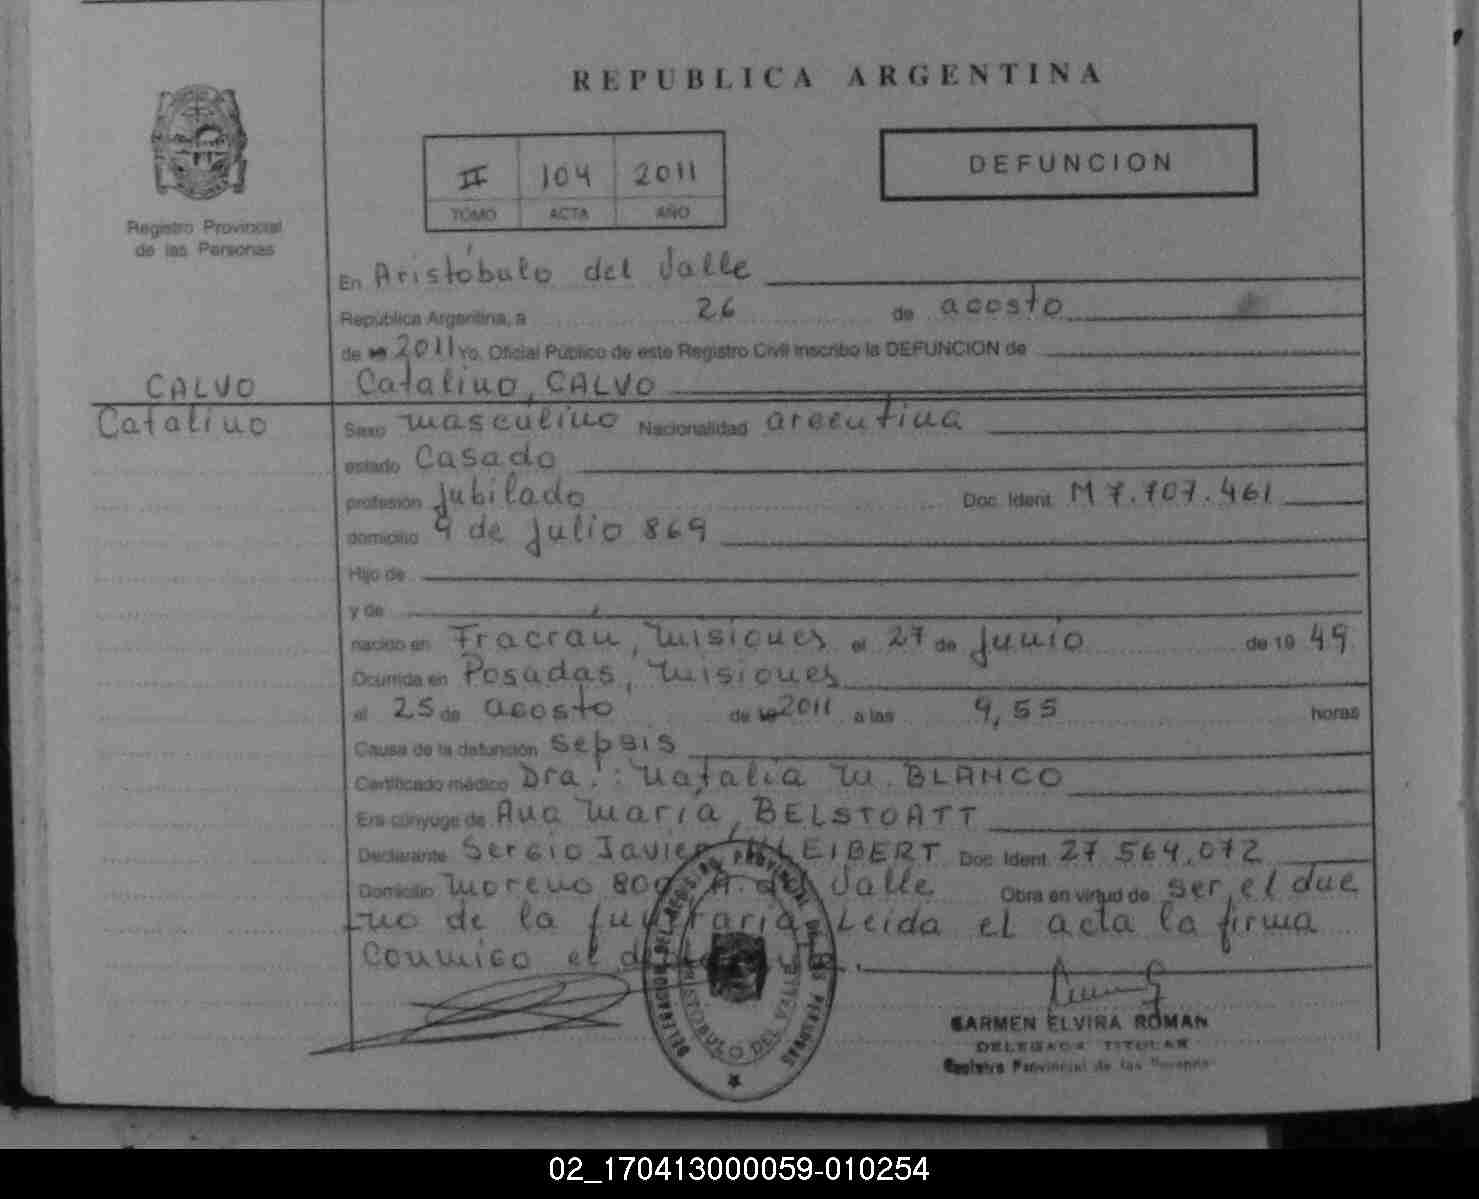 REPUBLICA ARGENTINA
Registro Provincial
de las Personas
II 104 2011
TOMO ACTA AÑO
DEFUNCION
En Aristóbulo del Valle
República Argentina, a 26 de agosto
de 19 2011 Yo, Oficial Público de este Registro Civil inscribo la DEFUNCION de
CALVO
Catalino
Catalino, CALVO
Sexo masculino Nacionalidad argentina
estado Casado
profesión jubilado Doc. Ident. M 7.707.461
domicilio 9 de julio 869
Hijo de
y de
nacido en Fracrán, Misiones el 27 de junio de 19 49
Ocurrida en Posadas, Misiones
el 25 de agosto de 19 2011 a las 9,55 horas
Causa de la defunción sepsis
Certificado médico Dra.: Natalia M. BLANCO
Era cónyuge de Ana María, BELSTOATT
Declarante Sergio Javier, KLEIBERT Doc. Ident. 27.564.072
Domicilio Moreno 800 A. del Valle Obra en virtud de ser el due
ño de la funeraria Leida el acta la firma
conmigo el
DELEGACION DEL REGISTRO PROVINCIAL DE LAS PERSONAS
ARISTOBULO DEL VALLE
CARMEN ELVIRA ROMAN
DELEGADA TITULAR
Registro Provincial de las Personas
02_170413000059-010254